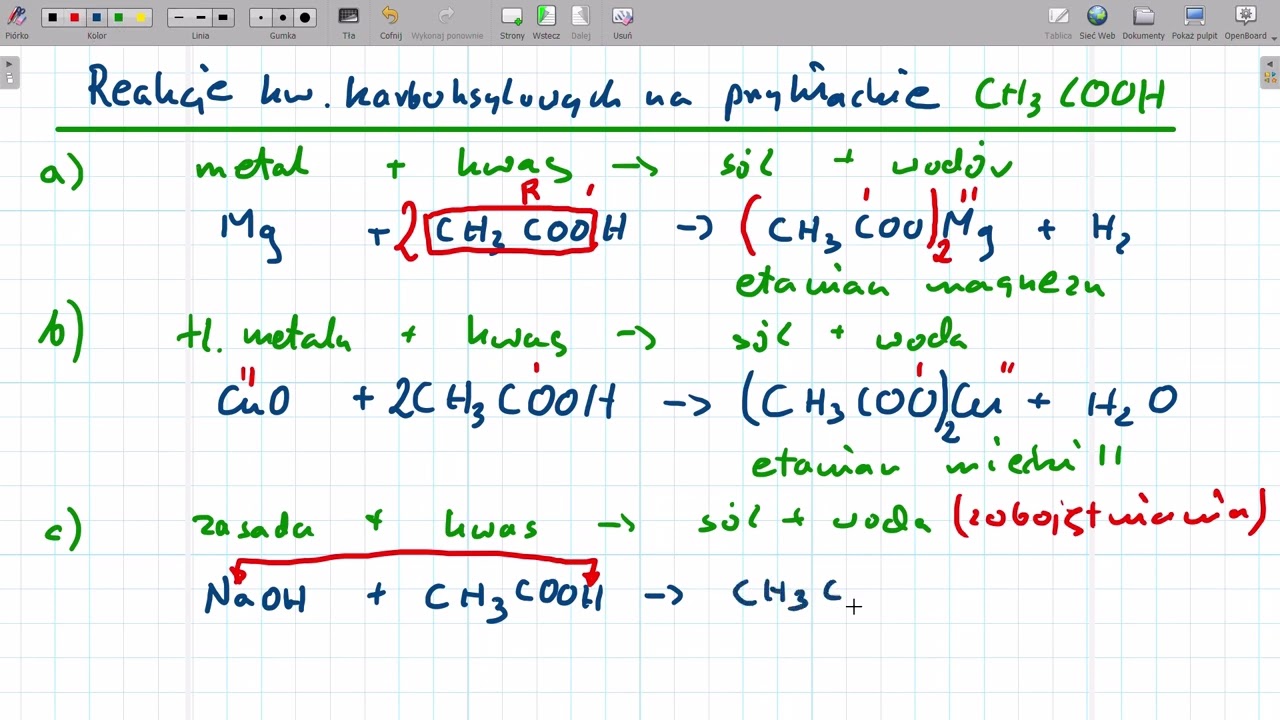 Pióro Kolor Linia Gumka Tła Cofnij Wykonaj ponownie Strony Wstecz Dalej Usuń Tablica Sieć Web Dokumenty Pokaż pulpit OpenBoard
Reakcje kw. karboksylowych na przykładzie CH3 COOH
a) metal + kwas → sól + wodór
R I I II
Mg + 2 CH3 COOH → (CH3 COO)2 Mg + H2
etanian magnezu
b) tl. metalu + kwas → sól + woda
II I I II
CuO + 2CH3COOH → (CH3COO)2Cu + H2O
etanian miedzi II
c) zasada + kwas → sól + woda (zobojętniania)
NaOH + CH3COOH → CH3 C